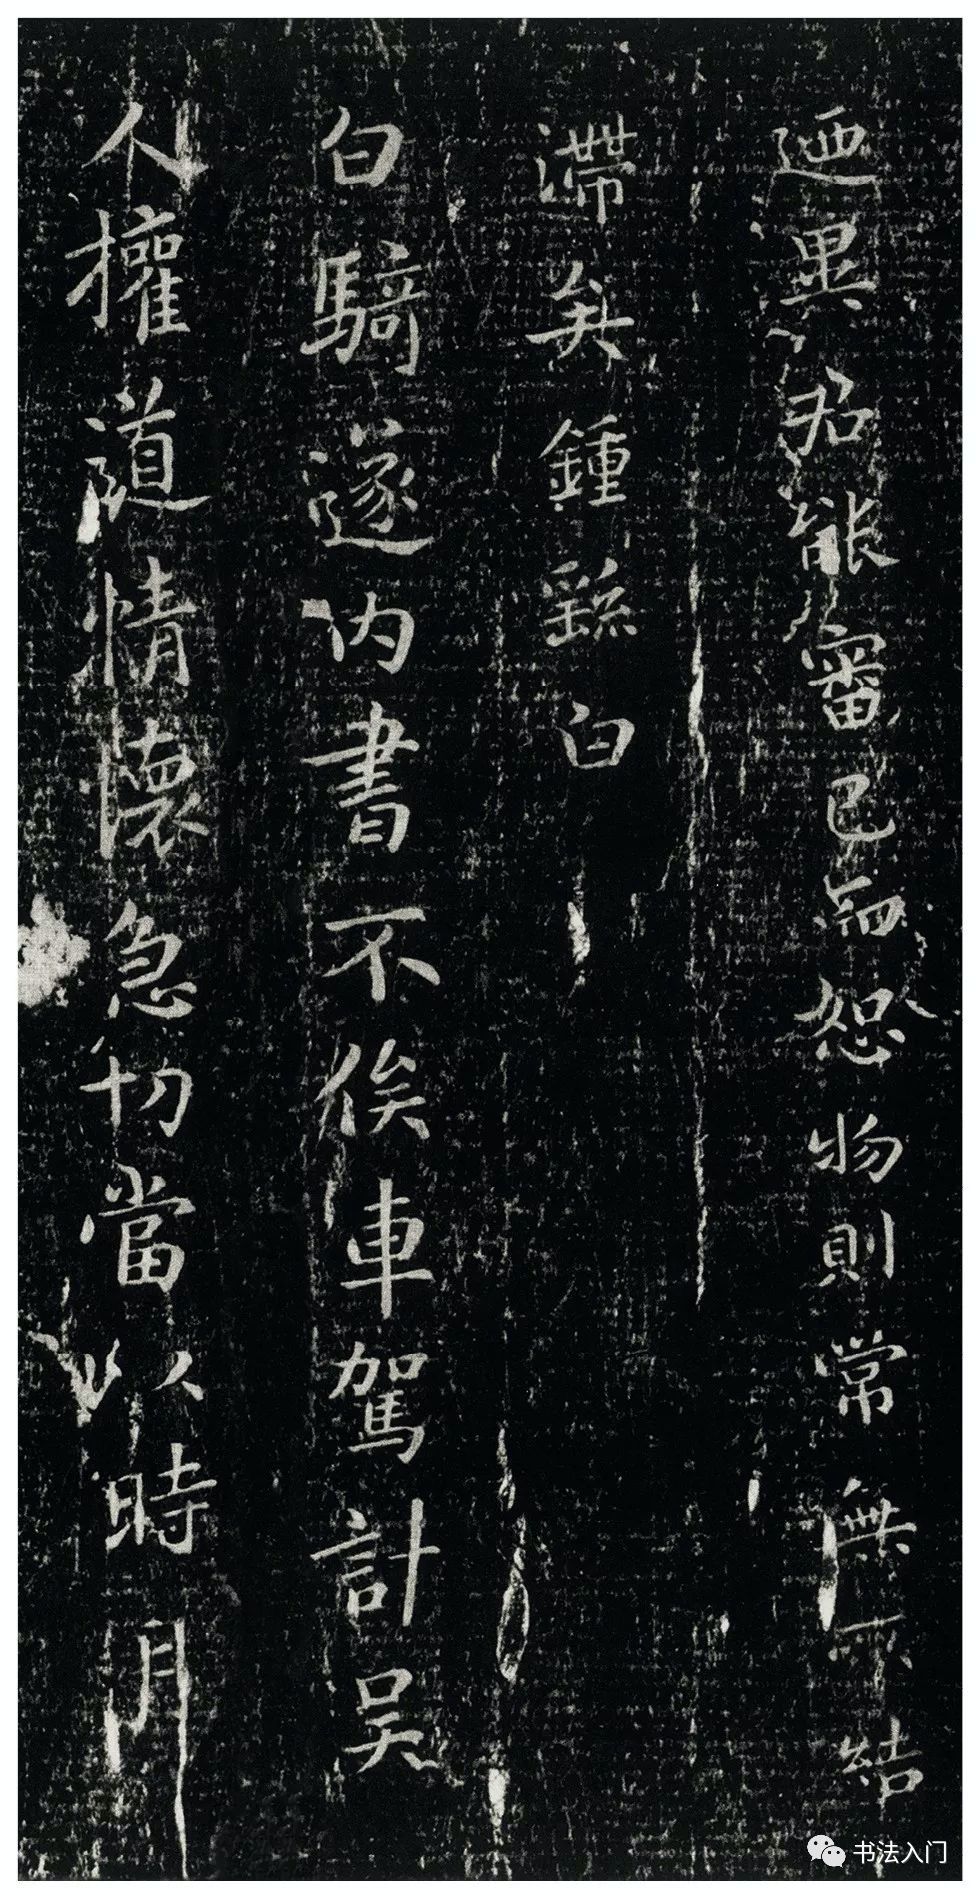 迺異君能審己而恕物則常無所結
滯矣鍾繇白
白騎遂内書不俟車駕計吳
人權道情懷急切當以時月
书法入门